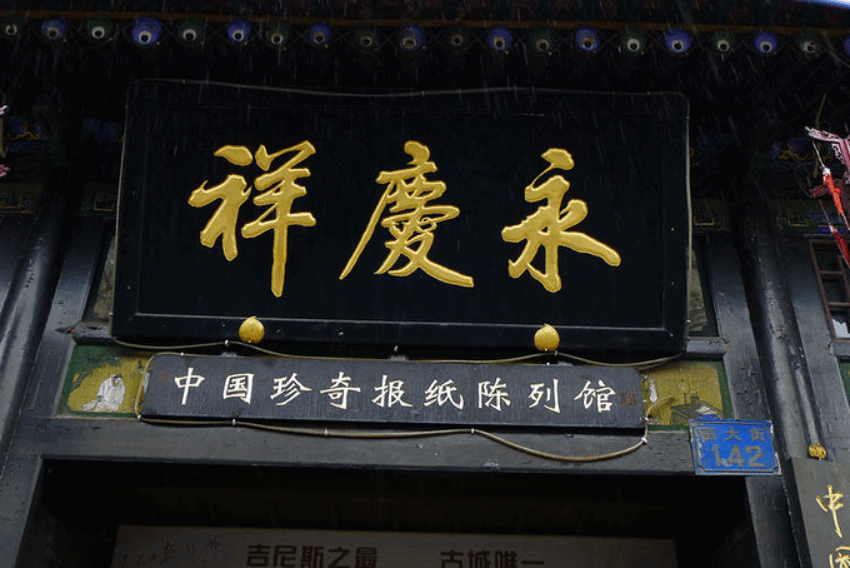 永慶祥
中国珍奇报纸陈列馆
南大街
142
吉尼斯之最 古城唯一
中国